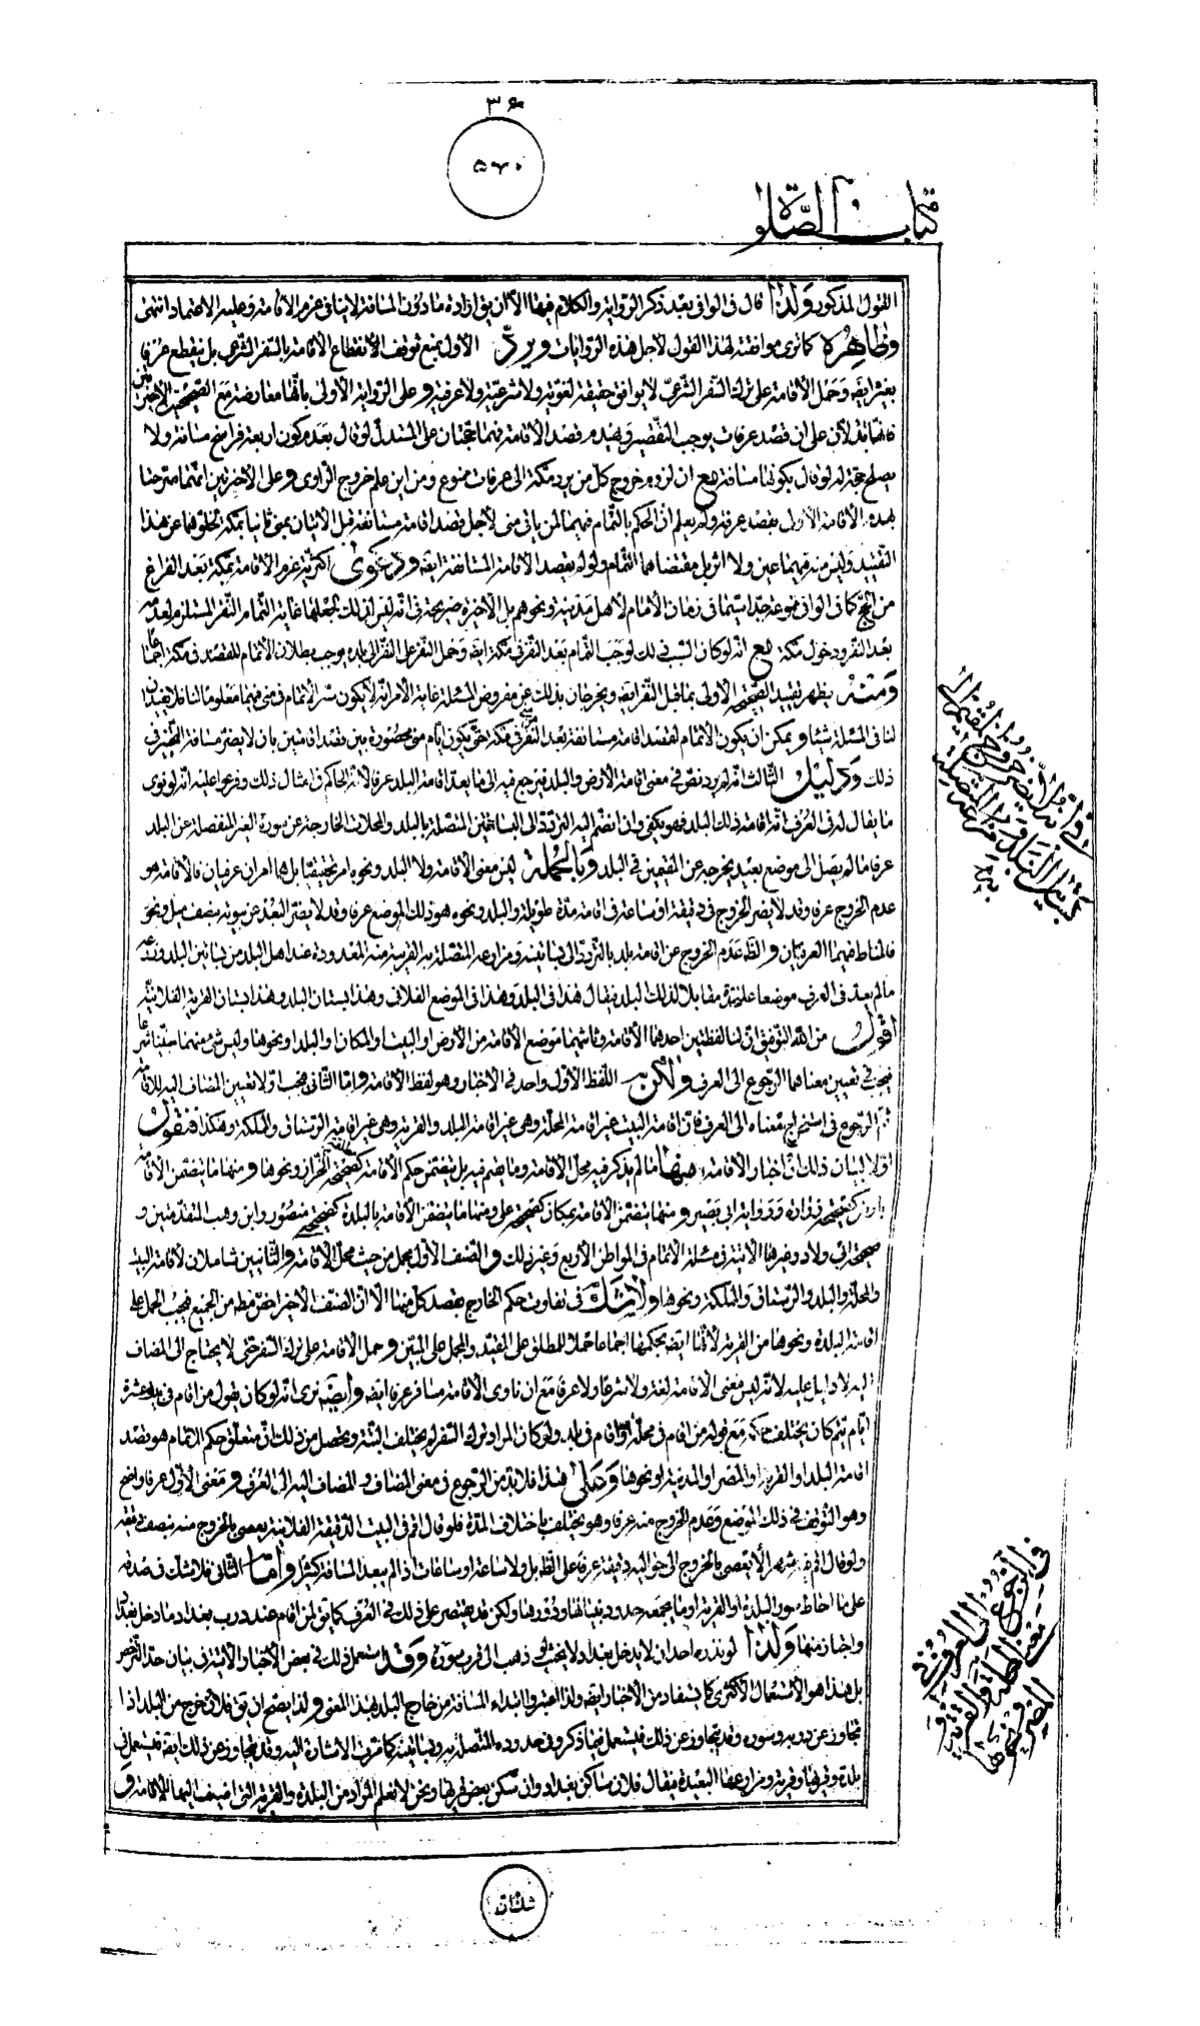 ٣۶
٥٧٠
كتاب الصلوة
القول المذكور ولذا قال في الوافي بعد ذكر الرواية والكلام فيها الا ان يق ارادة ما دون المسافة لا ينافي عزم الاقامة وعليه الاعتماد انتهى
وظاهره كما ترى موافقته لهذا القول لاجل هذه الروايات ويرد الاول بمنع توقف الانقطاع الاقامة بالسفر الشرعي بل ينقطع عرفا
بغيره ايضه وحمل الاقامة على ترك السفر الشرعي لا يوافق حقيقة لغوية ولا شرعية ولا عرفية وعلى الرواية الاولى بانها معارضة مع الصحيحتين الاخيرتين
فانهما تدلان على ان قصد عرفات يوجب التقصير ويهدم قصد الاقامة فهما حجتان على المستدل لو قال بعدم كون اربعة فراسخ مسافة ولا
يصلح حجة له لو قال بكونها مسافة مع ان لزوم خروج كل من يرد مكة الى عرفات ممنوع ومن اين علم خروج الراوي وعلى الاخيرتين انهما صرحتا
بهدم الاقامة الاولى بقصد عرفة ولم يعلم ان الحكم بالتمام فيهما لمن ياتي منى لاجل قصد اقامة مستانفة قبل الاتيان بمنى ثانيا بمكة لخلوهما عن هذا
التقييد وليس منه فيهما عين ولا اثر بل مقتضاهما التمام ولو لم يقصد الاقامة المستانفة ايضه ودعوى اكثرية عزم الاقامة بمكة بعد الفراغ
من الحج كما في الوافي ممنوعة جدا سيما في زمان الامام لاهل مدينة ونحوهم بل الاخيرة صريحة في انه ليس لذلك لجعلها غاية التمام النفر المستلزم لعدمه
بعد النفر ودخول مكة مع انه لو كان السبب ذلك لوجب التمام بعد النفر في مكة ايضه وحمل النفر على النفر الى بلده يوجب بطلان الاتمام للقصد في مكة اجماعا
ومنه يظهر تقييد الصحيحة الاولى بما قبل النفر ايضه ويخرجان بذلك عن مفروض المسئلة غاية الامر انه لا يكون سر الاتمام في منى فيهما معلوما لنا فلا يفيدان
لنا في المسئلة شيئا ويمكن ان يكون الاتمام لقصد اقامة مستانفة بعد النفر في مكة حتى يكون ايام منى محصورة بين قصد اقامتين بان لا يضر مسافة التخيير في
ذلك ودليل الثالث انه لم يرد نص في معنى اقامة الارض والبلد فيرجع فيه الى ما يعد اقامة البلد عرفا لانه الحاكم في امثال ذلك وفرعوا عليه انه لو نوى
ما يقال له في العرف انه اقامة ذلك البلد فهو يكفي وان انضم اليه التردد الى البساتين المتصلة بالبلد والمحلات الخارجة عن سورة الغير المنفصلة عن البلد
عرفا ما لم يصل الى موضع بعيد يخرجه عن المقيمين في البلد وبالجملة ليس معنى الاقامة ولا البلد ونحوه امر تحقيقيا بل هما امران عرفيان فالاقامة هو
عدم الخروج عرفا وقد لا يضر الخروج في دقيقة او ساعة في اقامة مدة طويلة والبلد ونحوه هو ذلك الموضع عرفا وقد لا يضر البعد عن بيوته بنصف ميل ونحوه
فالمناط فيهما العرفيان والظ عدم الخروج عن اقامة بلد بالتردد الى بساتينه ومزارعه المتصلة به القريبة منه المعدودة عند اهل البلد من بساتين البلد ومزارعه
ما لم يعد في العرف موضعا علىحدة مقابلا لذلك البلد فيقال هذا في البلد وهذا في الموضع الفلاني وهذا بستان البلد وهذا بستان القرية الفلانية
اقول من الله التوفيق ان لنا لفظتين احدهما الاقامة وثانيهما موضع الاقامة من الارض او البيت او المكان او البلد او نحوها وليس شئ منهما مبينا شرعا
فيجب في تعيين معناهما الرجوع الى العرف ولكن اللفظ الاول واحد في الاخبار وهو لفظ الاقامة واما الثاني فيجب اولا تعيين المضاف اليه للاقامة
ثم الرجوع في استخراج معناه الى العرف فان اقامة البيت غير اقامة المحلة وهي غير اقامة البلد والقرية وهي غير اقامة الرستاق والمملكة وهكذا فنقول
اولا لبيان ذلك ان اخبار الاقامة منها ما لم يذكر فيه محل الاقامة وما يضم فيه بل يتضمن حكم الاقامة كصحيحة الخزاز ونحوها ومنها ما يتضمن الاقامة
بارض كصحيحة زرارة ورواية ابي بصير ومنها يتضمن الاقامة بمكان كصحيحة علي ومنها ما يتضمن الاقامة بالبلدة كصحيحة منصور وابن وهب المتقدمتين و
صحيحة ابي ولاد وغيرها الآتية في مسئلة الاتمام في المواطن الاربع وغير ذلك والصنف الاول مجمل من حيث محل الاقامة والثانيين شاملان لاقامة البيت
والمحلة والبلد والرستاق والمملكة ونحوها ولا شك في تفاوت حكم الخارج بقصد كل منها الا ان الصنف الاخير اخص مطلقا من الجميع فيجب الحمل على
اقامة البلدة ونحوها من القرية لانها ايضه بحكمها اجماعا حملا للمطلق على المقيد والمجمل على المبين وحمل الاقامة على ترك السفر حتى لا يحتاج الى المضاف
اليه لا دليل عليه لانه ليس معنى الاقامة لغة ولا شرعا ولا عرفا مع ان ناوي الاقامة مسافر عرفا ايضه وايضه نرى انه لو كان يقول من اقام في بلد عشرة
ايام يتم كان يختلف حكمه مع قوله من اقام في محلة او اقام في بلد ولو كان المراد ترك السفر لم يختلف البتة ويحصل من ذلك ان متعلق حكم الاتمام هو قصد
اقامة البلد او القرية او المصر او المدينة او نحوها وعلى هذا فلا بد من الرجوع في معنى المضاف والمضاف اليه الى العرف ومعنى الاول عرفا واضح
وهو التوقف في ذلك الموضع وعدم الخروج منه عرفا وهو يختلف باختلاف المدة فلو قال اقم في البيت الدقيقة الفلانية يعصى بالخروج منه بنصف دقيقة
ولو قال اقم فيه شهرا لا يعصى بالخروج الى حواليه دقيقة عرفا على الظ بل ولا ساعة او ساعات اذا لم يبعد المسافة كثيرا واما الثاني فلا شك في صدقه
على ما احاط سور البلدة او القرية او ما يجمعه حدود بنيانها ودورها ولكن قد يقتصر على ذلك في العرف كما يق لمن اقام عند درب بغداد ما دخل بغداد
واجتاز منها ولذا لو نذر احد ان لا يدخل بغداد لا يحنث لو ذهب الى قرب سوره وقد يستعمل ذلك في بعض الاخبار الآتية في بيان حد الترخص
بل هذا هو الاستعمال الاكثري كما يستفاد من الاخبار ايضه ولذا اعتبروا ابتداء المسافة من خارج البلد بهذا المعنى ولذا يصح ان يق فلان خرج من البلد اذا
تجاوز عن دوره وسوره وقد يتجاوز عن ذلك فيستعمل فيما ذكر وفي حدوده المتصلة به وبساتينه كما مرت الاشارة اليه وقد يتجاوز عن ذلك ايضه فيستعمل في
بلدة وقراها وقرية ومزارعها البعيدة فيقال فلان ساكن بغداد وان سكن بعض قراها ونحن لا نعلم المراد من البلدة والقرية التي اضيف اليها الاقامة و
في الرجوع الى العرف في